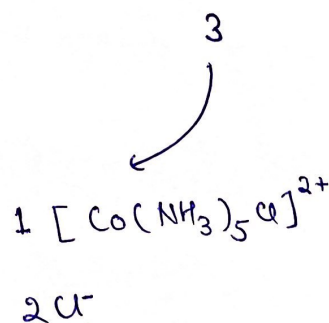 3
1 [Co(NH₃)₅Cl]²⁺
2Cl⁻